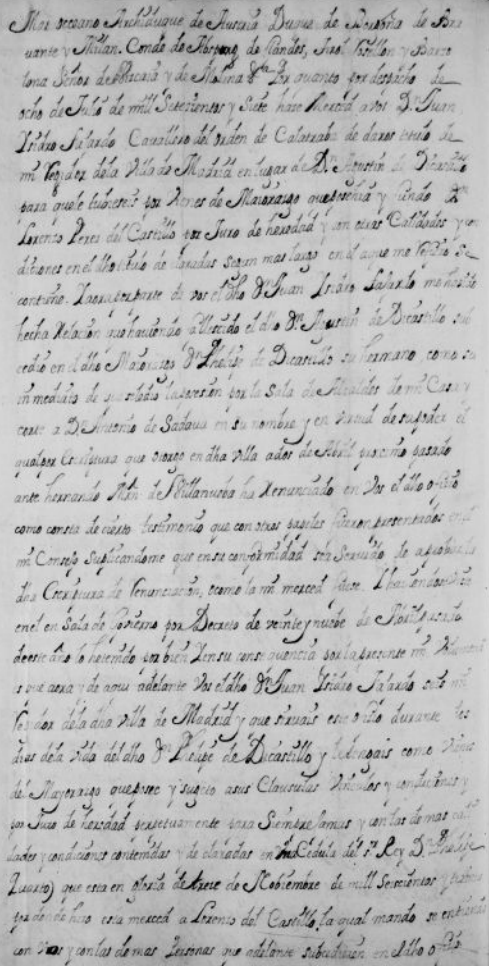 Mar oceano Archiduque de Austria Duque de Borgoña de Bra
vante y Milan. Conde de Abspurg de flandes, Tirol Rosellon y Barce
lona Señor de Vizcaia y de Molina &ta Por quanto por despacho de
ocho de Julio de mill Setecientos y Siete hize Merced a vos Dn Juan
Isidro fajardo Cavallero del orden de Calatraba de daros titulo de
mi Regidor dela Villa de Madrid en lugar de Dn Agustin de Dicastillo
para que le tubieseis por vienes de Maiorazgo que posehia y siendo Dn
Lorenzo Peres del Castillo por Juro de heredad y con otras Calidades y con
diciones en el dho titulo declaradas segun mas largo en el aque me refiero se
contiene. Y aora por parte de vos el dho Dn Juan Isidro fajardo me ha sido
hecha relacion que haviendo fallescido el dho Dn Agustin de Dicastillo sub
cedio en el dho Maiorazgo Dn Phelipe de Dicastillo su hermano como su
inmediato de que se le dio la posesion por la Sala de Alcaldes de mi Casa y
corte a D. Antonio de Sadaua en su nombre y en virtud de su poder el
qual por escriptura que otorgo en dha villa a dos de Abril proximo pasado
ante hernando de Villanueba ha renunciado en vos el dho oficio
como consta de cierto testimonio que con otros papeles fueron presentados en el
mi Consejo Suplicandome que en su conformidad sea Servido de aprobar la
dha Escriptura de renunciacion, o como la mi merced fuese. Y haviendose visto
en el en Sala de Govierno por Decreto de veinte y nuebe de Abril pasado
de este año lo he tenido por bien Y en su consequencia por la presente mi Voluntad
es que aora y de aqui adelante Vos el dho Dn Juan Isidro fajardo seais mi
Regidor dela dha villa de Madrid y que sirvais este oficio durante los
dias dela vida del dho Dn Phelipe de Dicastillo y le tengais como vienes
del Mayorazgo que posee y sugeto a sus Clausulas Vinculos y condiciones y
por Juro de heredad perpetuamente para Siempre Jamas y con las demas cali
dades y condiciones contenidas y declaradas en Cedula del sr Rey Dn Phelipe
Quarto) que esta en gloria de trece de Nobiembre de mill Seiscientos y
por donde hizo esta merced a Lorenzo del Castillo, la qual mando se entienda
con Vos y con las demas Personas que adelante subcedieren en el dho oficio